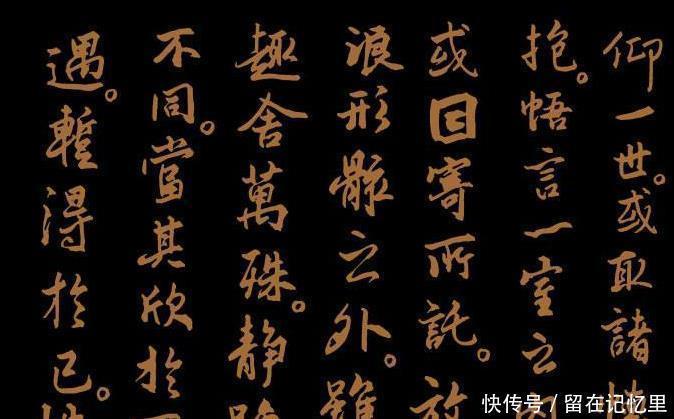 仰一世。或取諸
抱。悟言一室之
或囙寄所託。放
浪形骸之外。雖
趣舍萬殊。静
不同。當其欣於
遇。蹔得於己。
快传号 / 留在记忆里